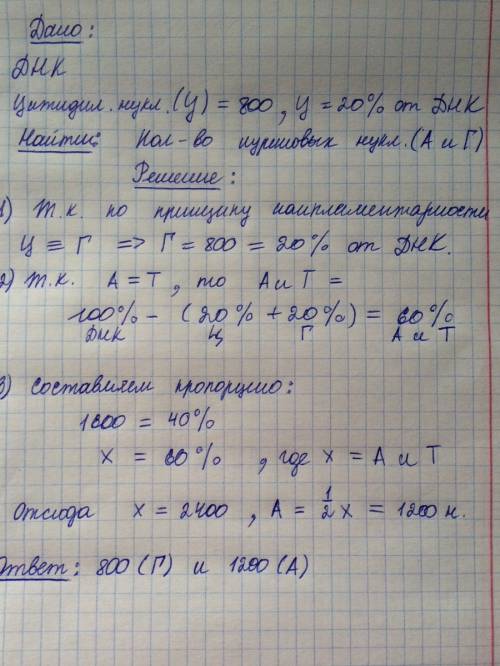 Дано:
ДНК
Цитидил. нукл. (Ц) = 800, Ц = 20% от ДНК
Найти: Кол-во пуриновых нукл. (А и Г)
Решение:
1) Т.к. по принципу комплементарности
Ц ≡ Г => Г = 800 = 20% от ДНК.
2) Т.к. А = Т, то А и Т =
100% - (20% + 20%) = 60%
ДНК Ц Г А и Т
3) Составляем пропорцию:
1600 = 40%
х = 60%, где х = А и Т
Отсюда х = 2400, А = 1/2 х = 1200 н.
Ответ: 800 (Г) и 1200 (А)